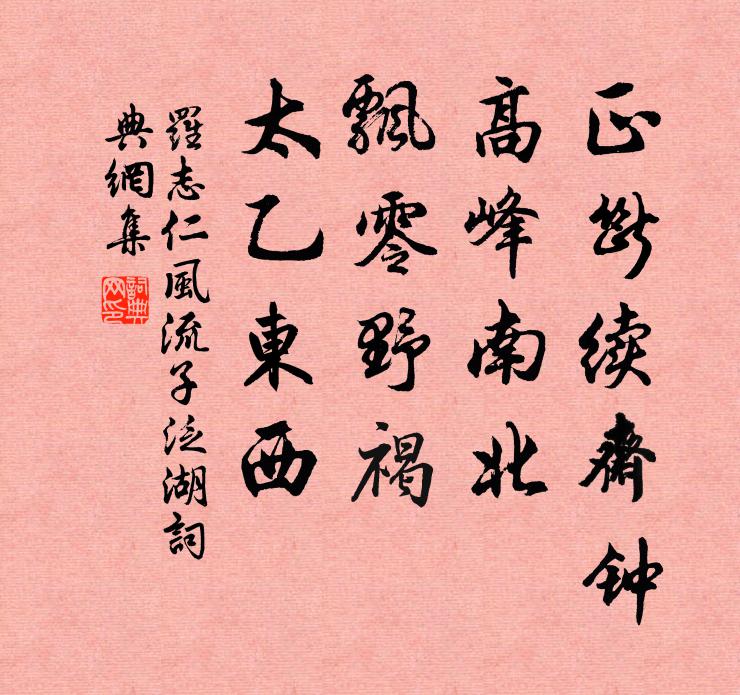 正斷续齋钟
高峰南北
飄零野褐
太乙東西
羅志仁風流子泛湖詞
典網集
詞典網印